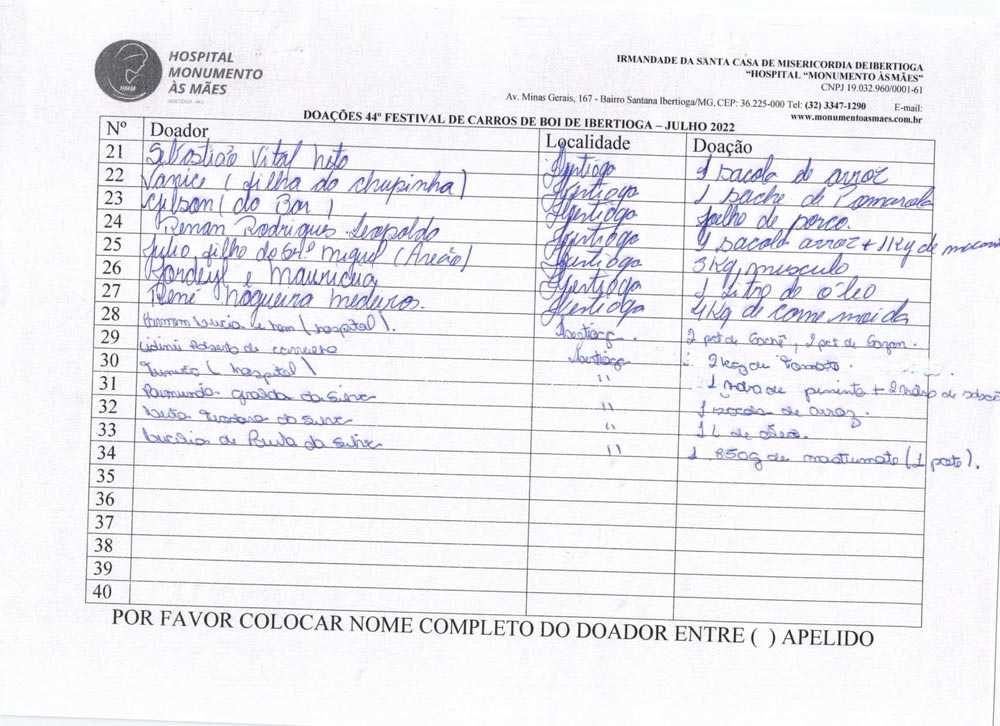 HOSPITAL
MONUMENTO
ÀS MÃES
HMM
IRMANDADE DA SANTA CASA DE MISERICORDIA DE IBERTIOGA
“HOSPITAL “MONUMENTO ÀS MÃES”
CNPJ 19.032.960/0001-61
Av. Minas Gerais, 167 - Bairro Santana Ibertioga/MG, CEP: 36.225-000 Tel: (32) 3347-1290 E-mail:
www.monumentoasmaes.com.br
DOAÇÕES 44º FESTIVAL DE CARROS DE BOI DE IBERTIOGA – JULHO 2022
Nº Doador Localidade Doação
21 Sebastião Vital Neto Ibertioga 1 sacola de arroz
22 Vanice (filha do chupinha) Ibertioga 1 sache de Pomarola
23 Gilson (do Bar) Ibertioga Joelho de porco
24 Renan Rodrigues Leopoldo Ibertioga 1 sacola arroz + 1Kg de
25 Julio filho do Miguel Ibertioga 3Kg musculo
26 e Mauricéia Ibertioga 1 Litro de óleo
27 René Nogueira Medeiros. Ibertioga 4Kg de carne moida
28 Lucia (hospital). Ibertioga. 2 pct de 2 pct de
29 Roberto de Ibertioga 2 kg de Tomate.
30 (hospital) " 1 vidro de pimenta + 2 vidro de
31 Raimunda da Silva " 1 sacola de arroz.
32 Teodora da Silva " 1 L de óleo.
33 de Paula da Silva " 1 850g de mastumate (1 pote).
34
35
36
37
38
39
40
POR FAVOR COLOCAR NOME COMPLETO DO DOADOR ENTRE ( ) APELIDO